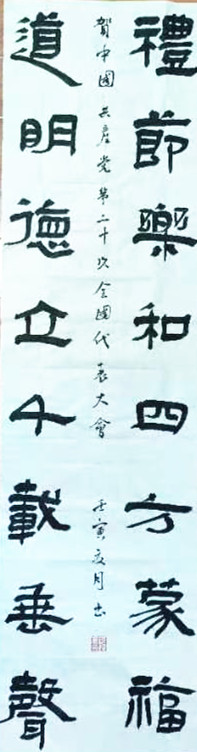 禮節樂和四方蒙福
道明德立千載垂聲
賀中國共產党第二十次全國代表大會
壬寅夏月書